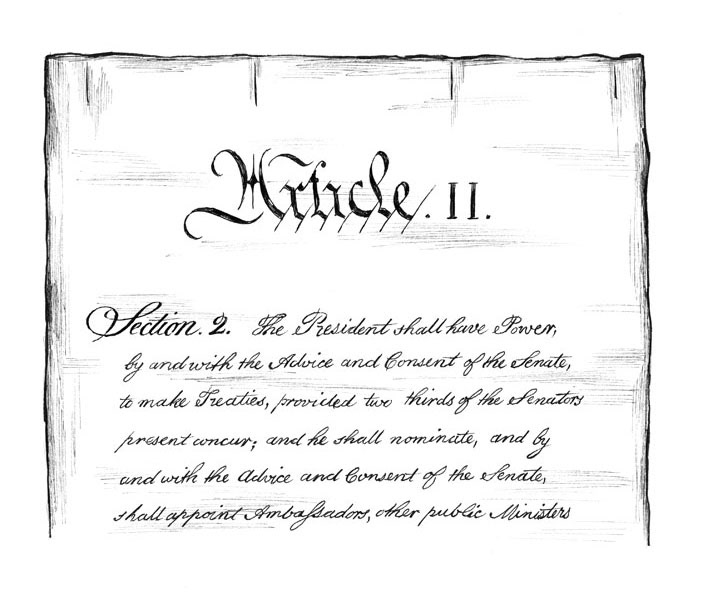 Article. II.
Section. 2. The President shall have Power,
by and with the Advice and Consent of the Senate,
to make Treaties, provided two thirds of the Senators
present concur; and he shall nominate, and by
and with the Advice and Consent of the Senate,
shall appoint Ambaſsadors, other public Ministers